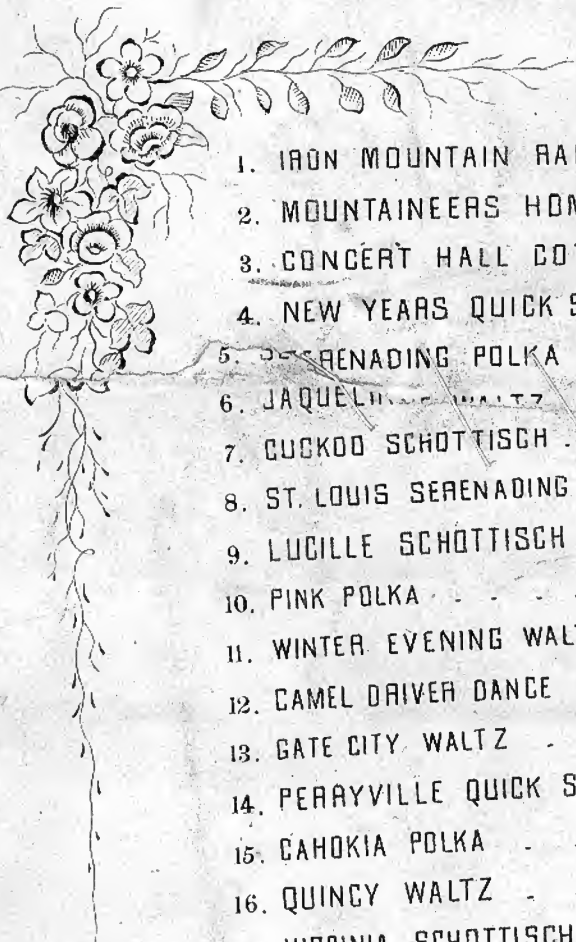 1. IRON MOUNTAIN
2. MOUNTAINEERS
3. CONCERT HALL
4. NEW YEARS QUICK
5. SERENADING POLKA
6. WALTZ
7. CUCKOO SCHOTTISCH .
8. ST. LOUIS SERENADING
9. LUCILLE SCHOTTISCH
10. PINK POLKA - - - -
11. WINTER EVENING
12. CAMEL DRIVER DANCE
13. GATE CITY WALTZ -
14. PERRYVILLE QUICK
15. CAHOKIA POLKA - -
16. QUINCY WALTZ -
VIRGINIA SCHOTTISCH